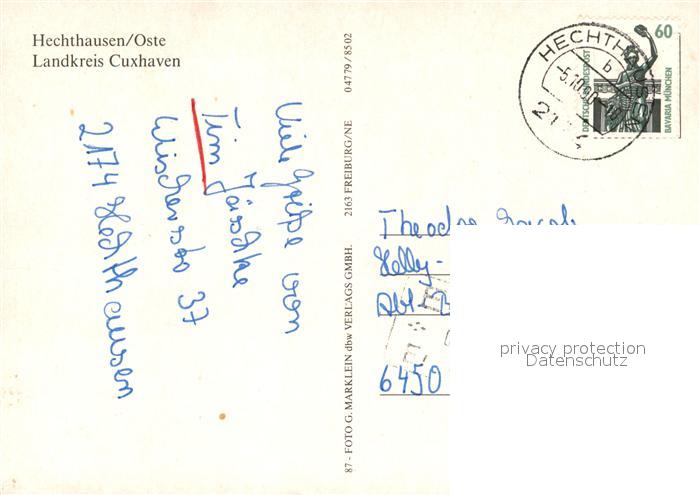 Hechthausen/Oste
Landkreis Cuxhaven
Viele Grüße von
Tim Jäschke
Wischenstr. 37
2174 Hechthausen
87 - FOTO G. MARKLEIN dbw VERLAGS GMBH. 2163 FREIBURG/NE 0 47 79 / 85 02
HECHTH
b
-5.10.90
21
60
DEUTSCHE BUNDESPOST
BAVARIA MÜNCHEN
Theodor
Kelly-
Abt-
6450
privacy protection
Datenschutz